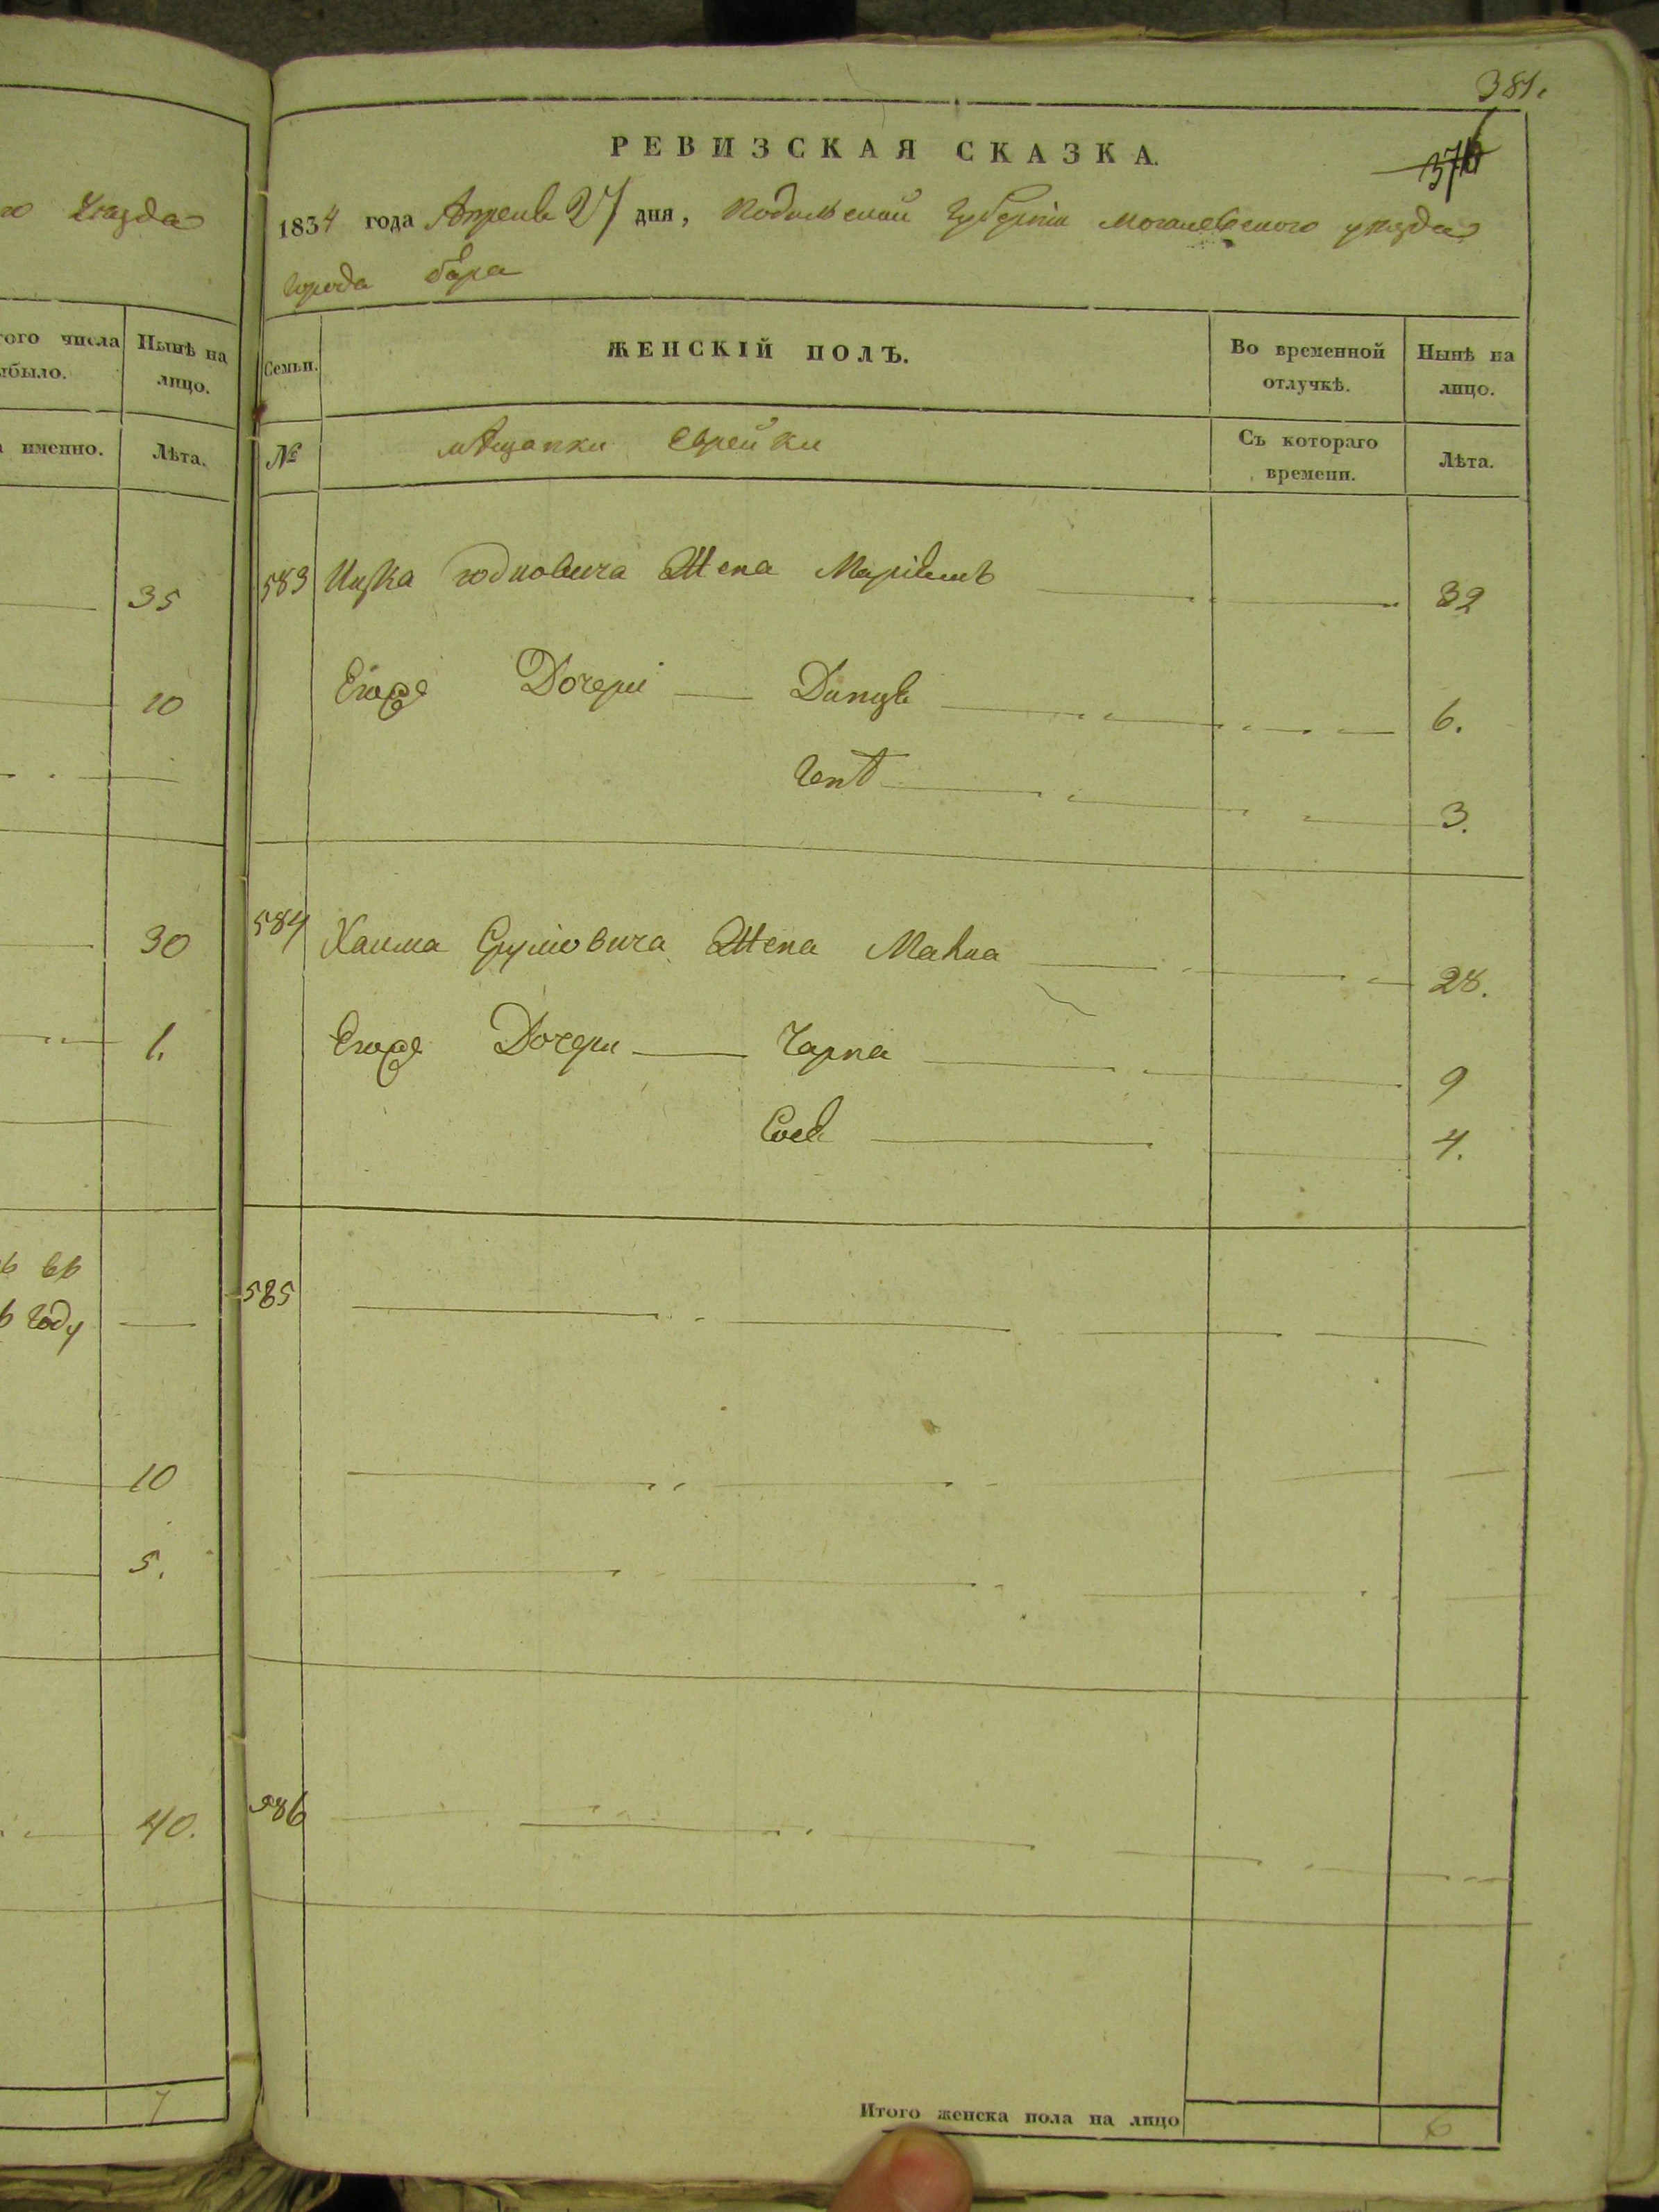 381.
РЕВИЗСКАЯ СКАЗКА.
376
1834 года Апреля 27 дня, Подольской Губернїи Могилевского уезда
города бара
уезда
того числа
выбыло.
Нынѣ на
лицо.
именно.
Лѣта.
Семьи.
ЖЕНСКІЙ ПОЛЪ.
Во временной
отлучкѣ.
Нынѣ на
лицо.
№
мѣщанки еврейки
Съ котораго
времени.
Лѣта.
35
583 Ицка Жена 32
10
Его Дочери 6.
3.
30
584 Хаима Сруловича Жена Малка 28.
1.
Его Дочери Чарна 9
4.
въ
году
585
10
5.
40.
586
7
Итого женска пола на лицо 6